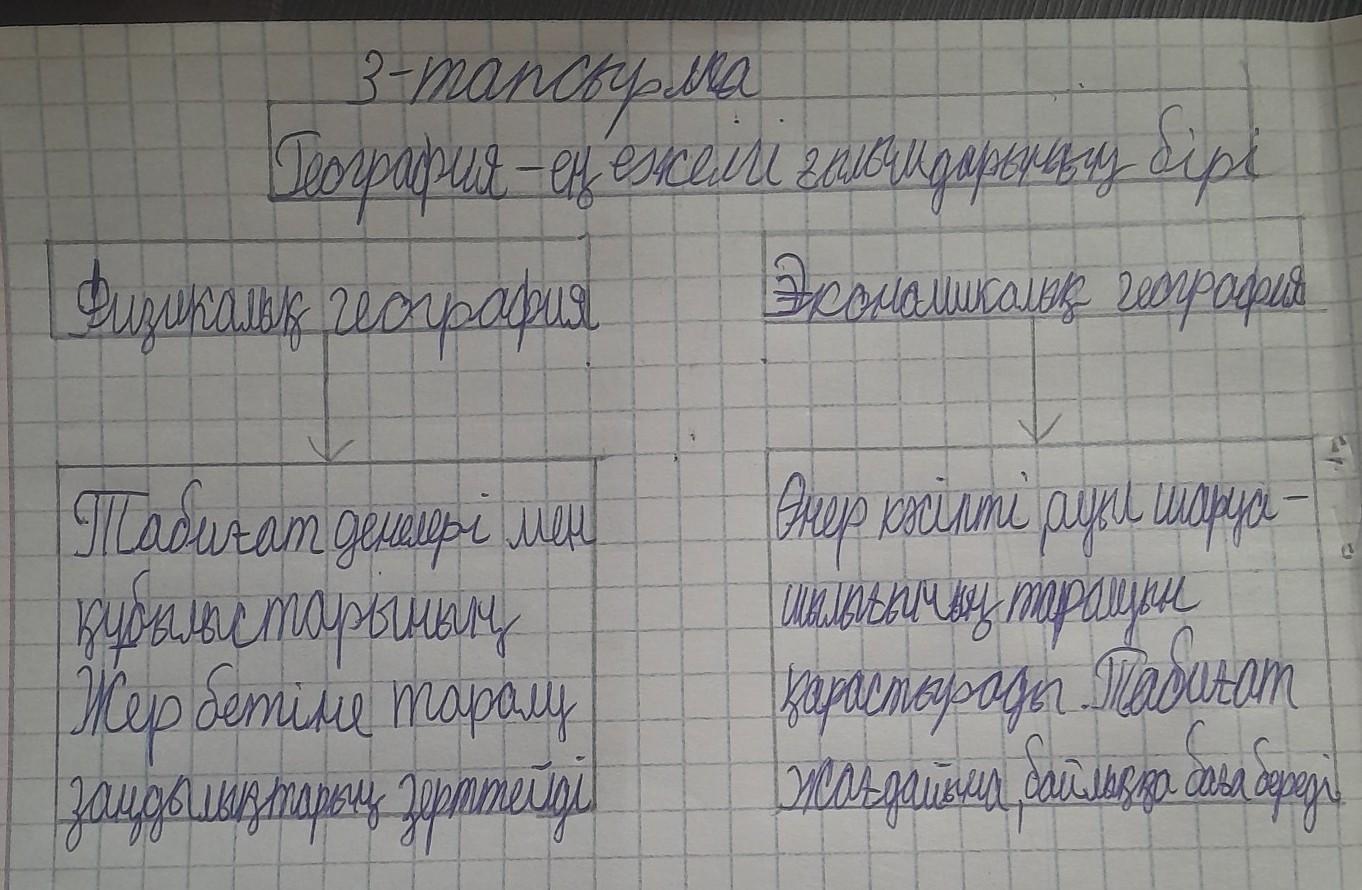 3-тапсырма
География - ең ежелгі ғылымдарының бірі
Физикалық география
Экономикалық география
Табиғат денелері мен
құбылыстарының
Жер бетіне таралу
заңдылықтарың зерттейді
Өнер кәсіпті, ауыл шаруа-
шылығының таралуын
қарастырады. Табиғат
жағдайына, байлыққа баға береді